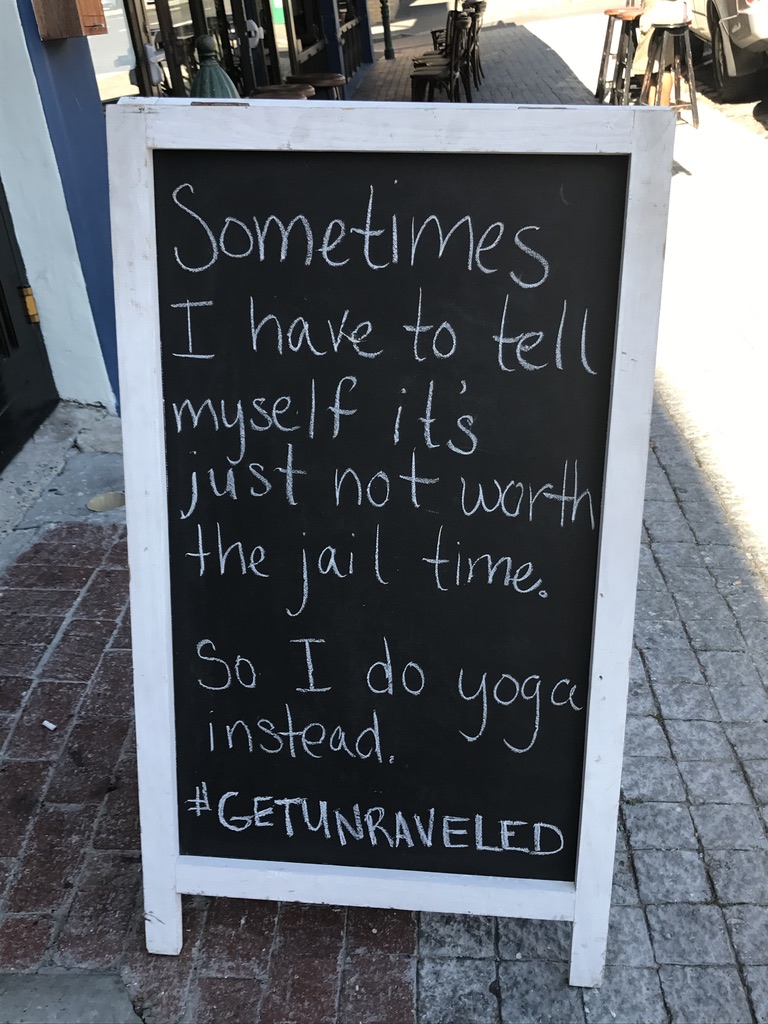 Sometimes
I have to tell
myself it's
just not worth
the jail time.
So I do yoga
instead.
#GETUNRAVELED